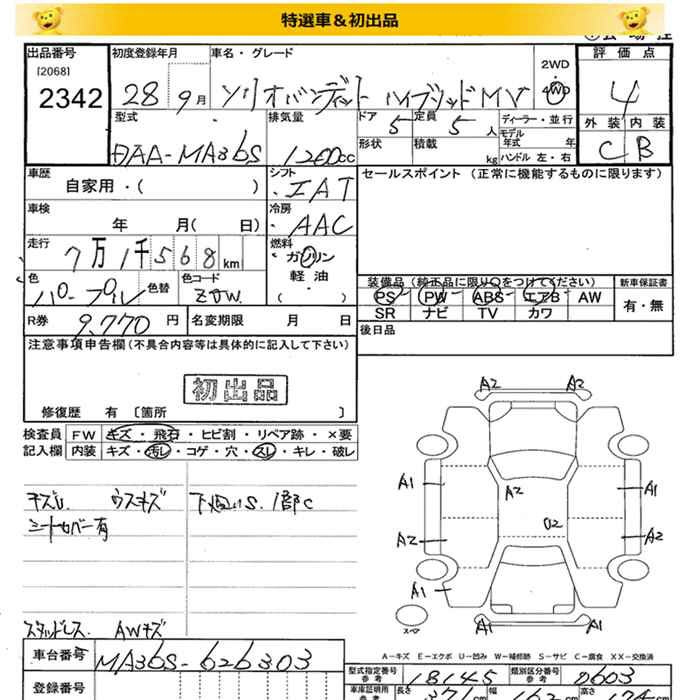 特選車＆初出品
出品番号 初度登録年月 車名・グレード 評価点
[2068] 2WD
2342 28 9月 ソリオバンディット ハイブリッドMV 4WD 4
型式 排気量 ドア 5 定員 5人 ディーラー・並行 外装 内装
DAA-MA36S 1200cc 形状 積載 kg モデル年式 年 C B
ハンドル 左・右
車歴 シフト セールスポイント (正常に機能するものに限ります)
自家用・( ) ・IAT
車検 冷房
年 月( 日) ・AAC
走行 燃料
7万1千568km ガソリン
色 色替 色コード 軽油
パ0-プル ZJW. ・( )
装備品 (純正品に限り○をつけてください) 新車保証書
PS PW ABS エアB AW 有・無
SR ナビ TV カワ
R券 9,770円 名変期限 月 日 後日品
注意事項申告欄(不具合内容等は具体的に記入して下さい)
初出品
修復歴 有 〔箇所 〕
検査員 FW キズ・飛石・ヒビ割・リペア跡・×要
記入欄 内装 キズ・汚レ・コゲ・穴・スレ・キレ・破レ
A2 A2
A1 A2 A1
A2 U2 A2
A1
A1 A1
スペア
キズU ウスキズ
シートカバー有
スタッドレス. AWキズ
A-キズ E-エクボ U-凹み W-補修跡 S-サビ C-腐食 XX-交換済
車台番号 MA36S-626303
型式指定番号 参考 18145 類別区分番号 参考 0603
登録番号
車庫証明用 参考 長さ 371cm 幅 高さ